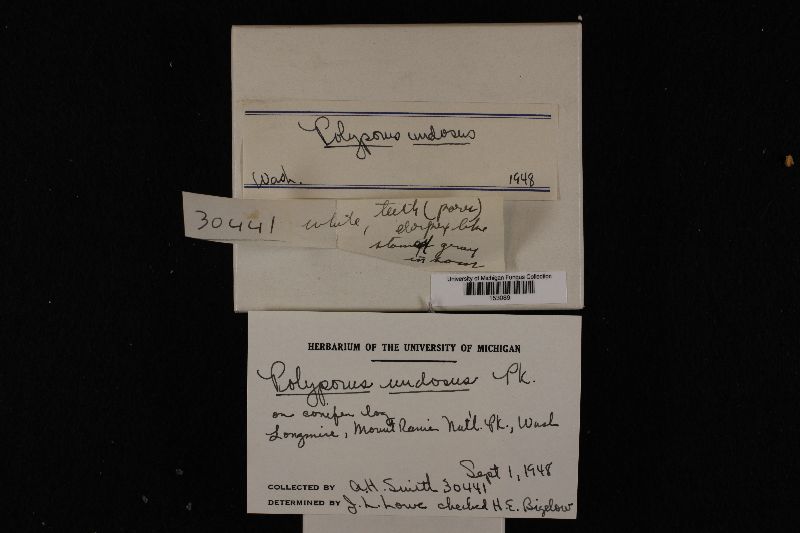 Polyporus undosus
Wash. 1948
30441 white, teeth (pores)
like
stained gray
in
University of Michigan Fungus Collection
153089
HERBARIUM OF THE UNIVERSITY OF MICHIGAN
Polyporus undosus Pk.
on conifer log
Longmire, Mount Rainier Nat'l. Pk., Wash
Sept 1, 1948
COLLECTED BY A.H. Smith 30441
DETERMINED BY J.L. Lowe checked H.E. Bigelow